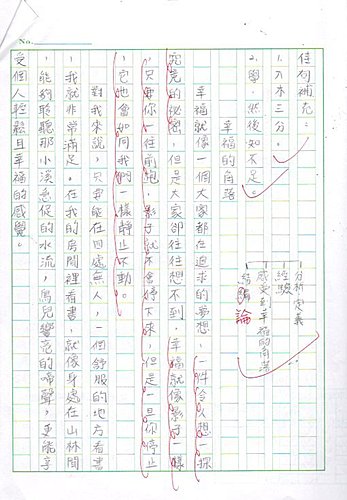 No.
佳句補充：
1.入木三分。
2.學，然後知不足。
分析定義
經驗
感受到幸福的角落
結論
幸福的角落
幸福就像一個大家都在追求的夢想，一件令人想一探
究竟的秘密，但是大家卻往往想不到，幸福就像影子一樣
，只要你一往前跑，影子就不會停下來，但是一旦你停止
，它也會如同我們一樣靜止不動。
對我來說，只要能在四處無人，一個舒服的地方看書
，我就非常滿足。在我的房間裡看書，就像身處在山林間
，能夠聆聽那小溪急促的水流，鳥兒響亮的啼聲，更能享
受個人輕鬆且幸福的感覺。